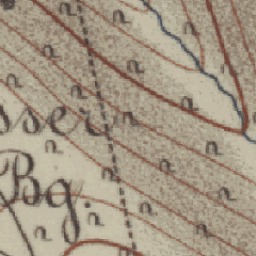 sser
Bg.